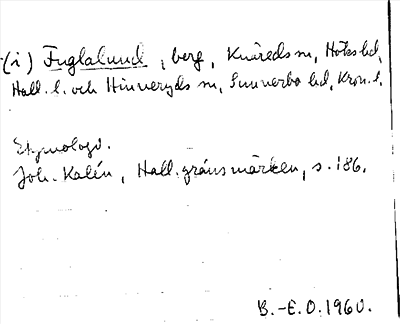 (i) Fuglalund, berg, Knäreds sn, Höks hd,
Hall. l. och Hinneryds sn, Sunnerbo hd, Kron. l.
Etymologi.
Joh. Kalén, Hall. gränsmärken, s. 186.
B.-E.O. 1960.